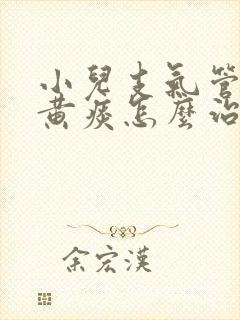 小兒支氣管
黄痰怎麼治
余宏漢